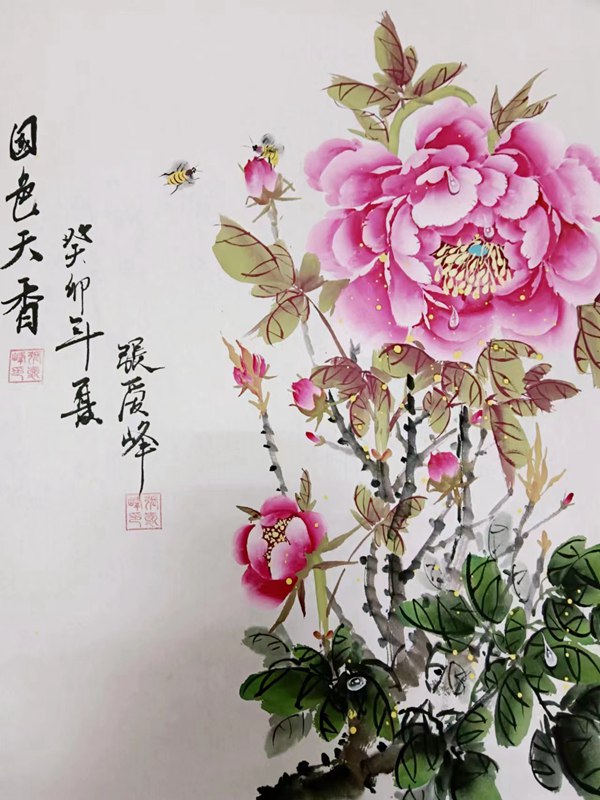 国色天香
癸卯年夏
張峰